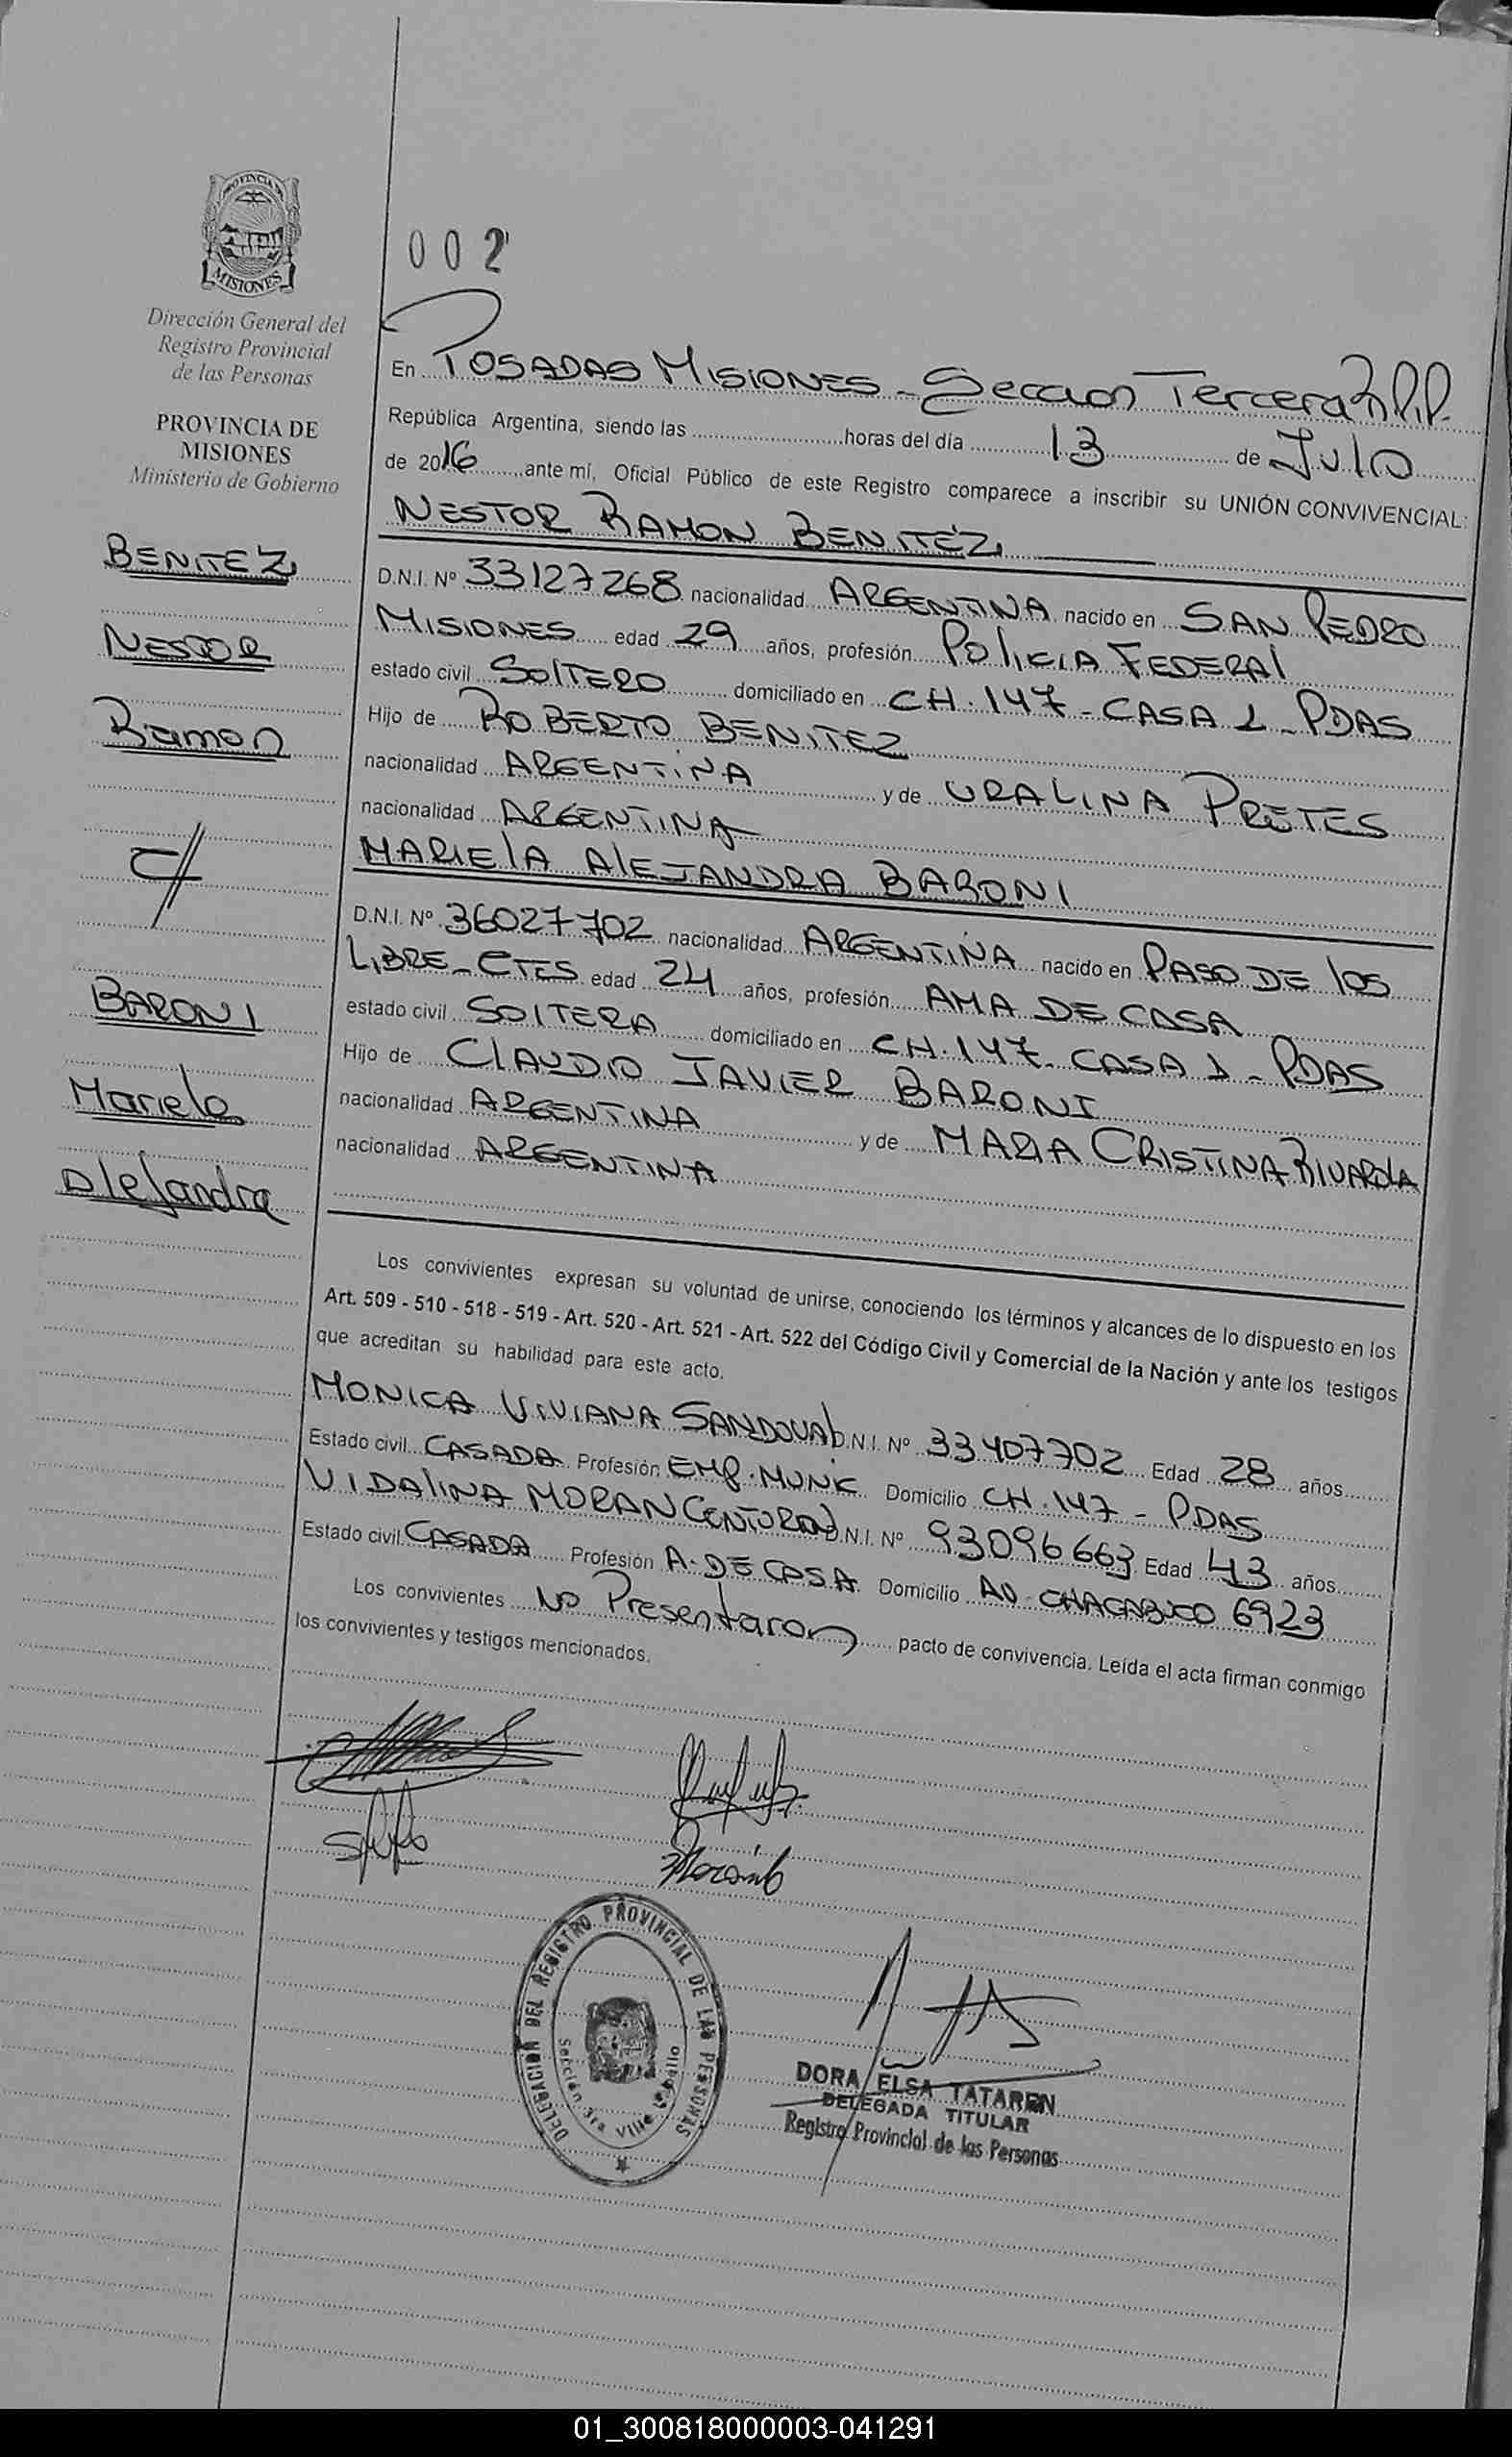 PROVINCIA DE
MISIONES
Dirección General del
Registro Provincial
de las Personas
PROVINCIA DE
MISIONES
Ministerio de Gobierno
BENITEZ
NESTOR
Ramon
c/
BARONI
Mariela
Alejandra
002
En POSADAS MISIONES - Seccion Tercera R.P.P.
República Argentina, siendo las horas del día 13 de Julio
de 2016, ante mí, Oficial Público de este Registro comparece a inscribir su UNIÓN CONVIVENCIAL:
NESTOR RAMON BENITEZ
D.N.I. Nº 33127268 nacionalidad ARGENTINA nacido en SAN PEDRO
MISIONES edad 29 años, profesión POLICIA FEDERAL
estado civil SOLTERO domiciliado en CH. 147 - CASA 1 - PDAS
Hijo de ROBERTO BENITEZ
nacionalidad ARGENTINA y de URALINA PRETES
nacionalidad ARGENTINA
MARIELA ALEJANDRA BARONI
D.N.I. Nº 36027702 nacionalidad ARGENTINA nacido en PASO DE LOS
LIBRE - CTES edad 24 años, profesión AMA DE CASA
estado civil SOLTERA domiciliado en CH. 147 - CASA 1 - PDAS
Hijo de CLAUDIO JAVIER BARONI
nacionalidad ARGENTINA y de MARIA CRISTINA RIVAROLA
nacionalidad ARGENTINA
Los convivientes expresan su voluntad de unirse, conociendo los términos y alcances de lo dispuesto en los
Art. 509 - 510 - 518 - 519 - Art. 520 - Art. 521 - Art. 522 del Código Civil y Comercial de la Nación y ante los testigos
que acreditan su habilidad para este acto.
MONICA VIVIANA SANDOVAL D.N.I. Nº 33407702 Edad 28 años
Estado civil CASADA Profesión EMP. MUNIC Domicilio CH. 147 - PDAS
VIDALINA MORAN CENTURION D.N.I. Nº 93096663 Edad 43 años
Estado civil CASADA Profesión A. DE CASA Domicilio AV. CHACABUCO 6923
Los convivientes NO Presentaron pacto de convivencia. Leída el acta firman conmigo
los convivientes y testigos mencionados.
DELEGACIÓN DEL REGISTRO PROVINCIAL DE LAS PERSONAS
Sección 3ra Villa
DORA ELSA TATAREN
DELEGADA TITULAR
Registro Provincial de las Personas
01_300818000003-041291